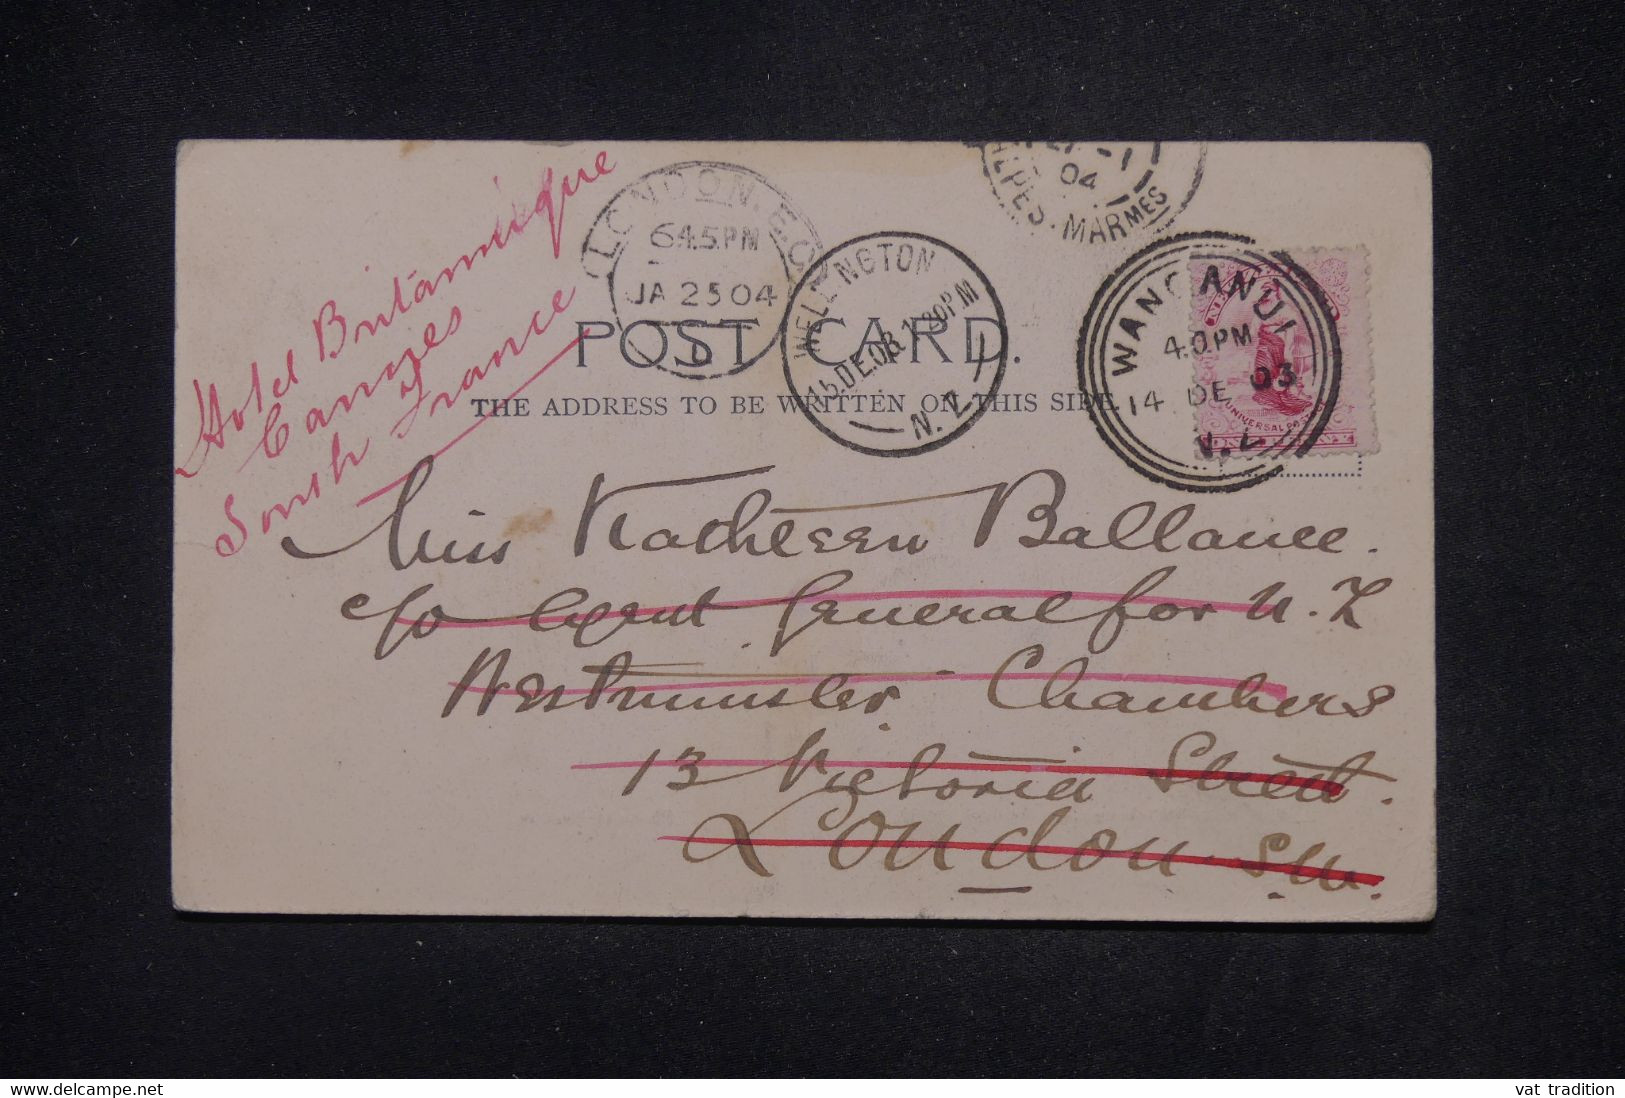 Hotel Britannique
Cannes
South France
LONDON. E.C
6.45.PM
JA 25 04
WELLINGTON
15.DE.03.1 30PM
N.Z.
-1
04
ALPES-MARMES
WANGANUI
4.0.PM
14 DE 03
N.Z.
UNIVERSAL PO
POST CARD.
THE ADDRESS TO BE WRITTEN ON THIS SIDE.
Miss Kathleen Ballance.
c/o Agent General for N.Z
Westminster Chambers
13 Victoria Street.
London S.W.
delcampe.net
vat tradition